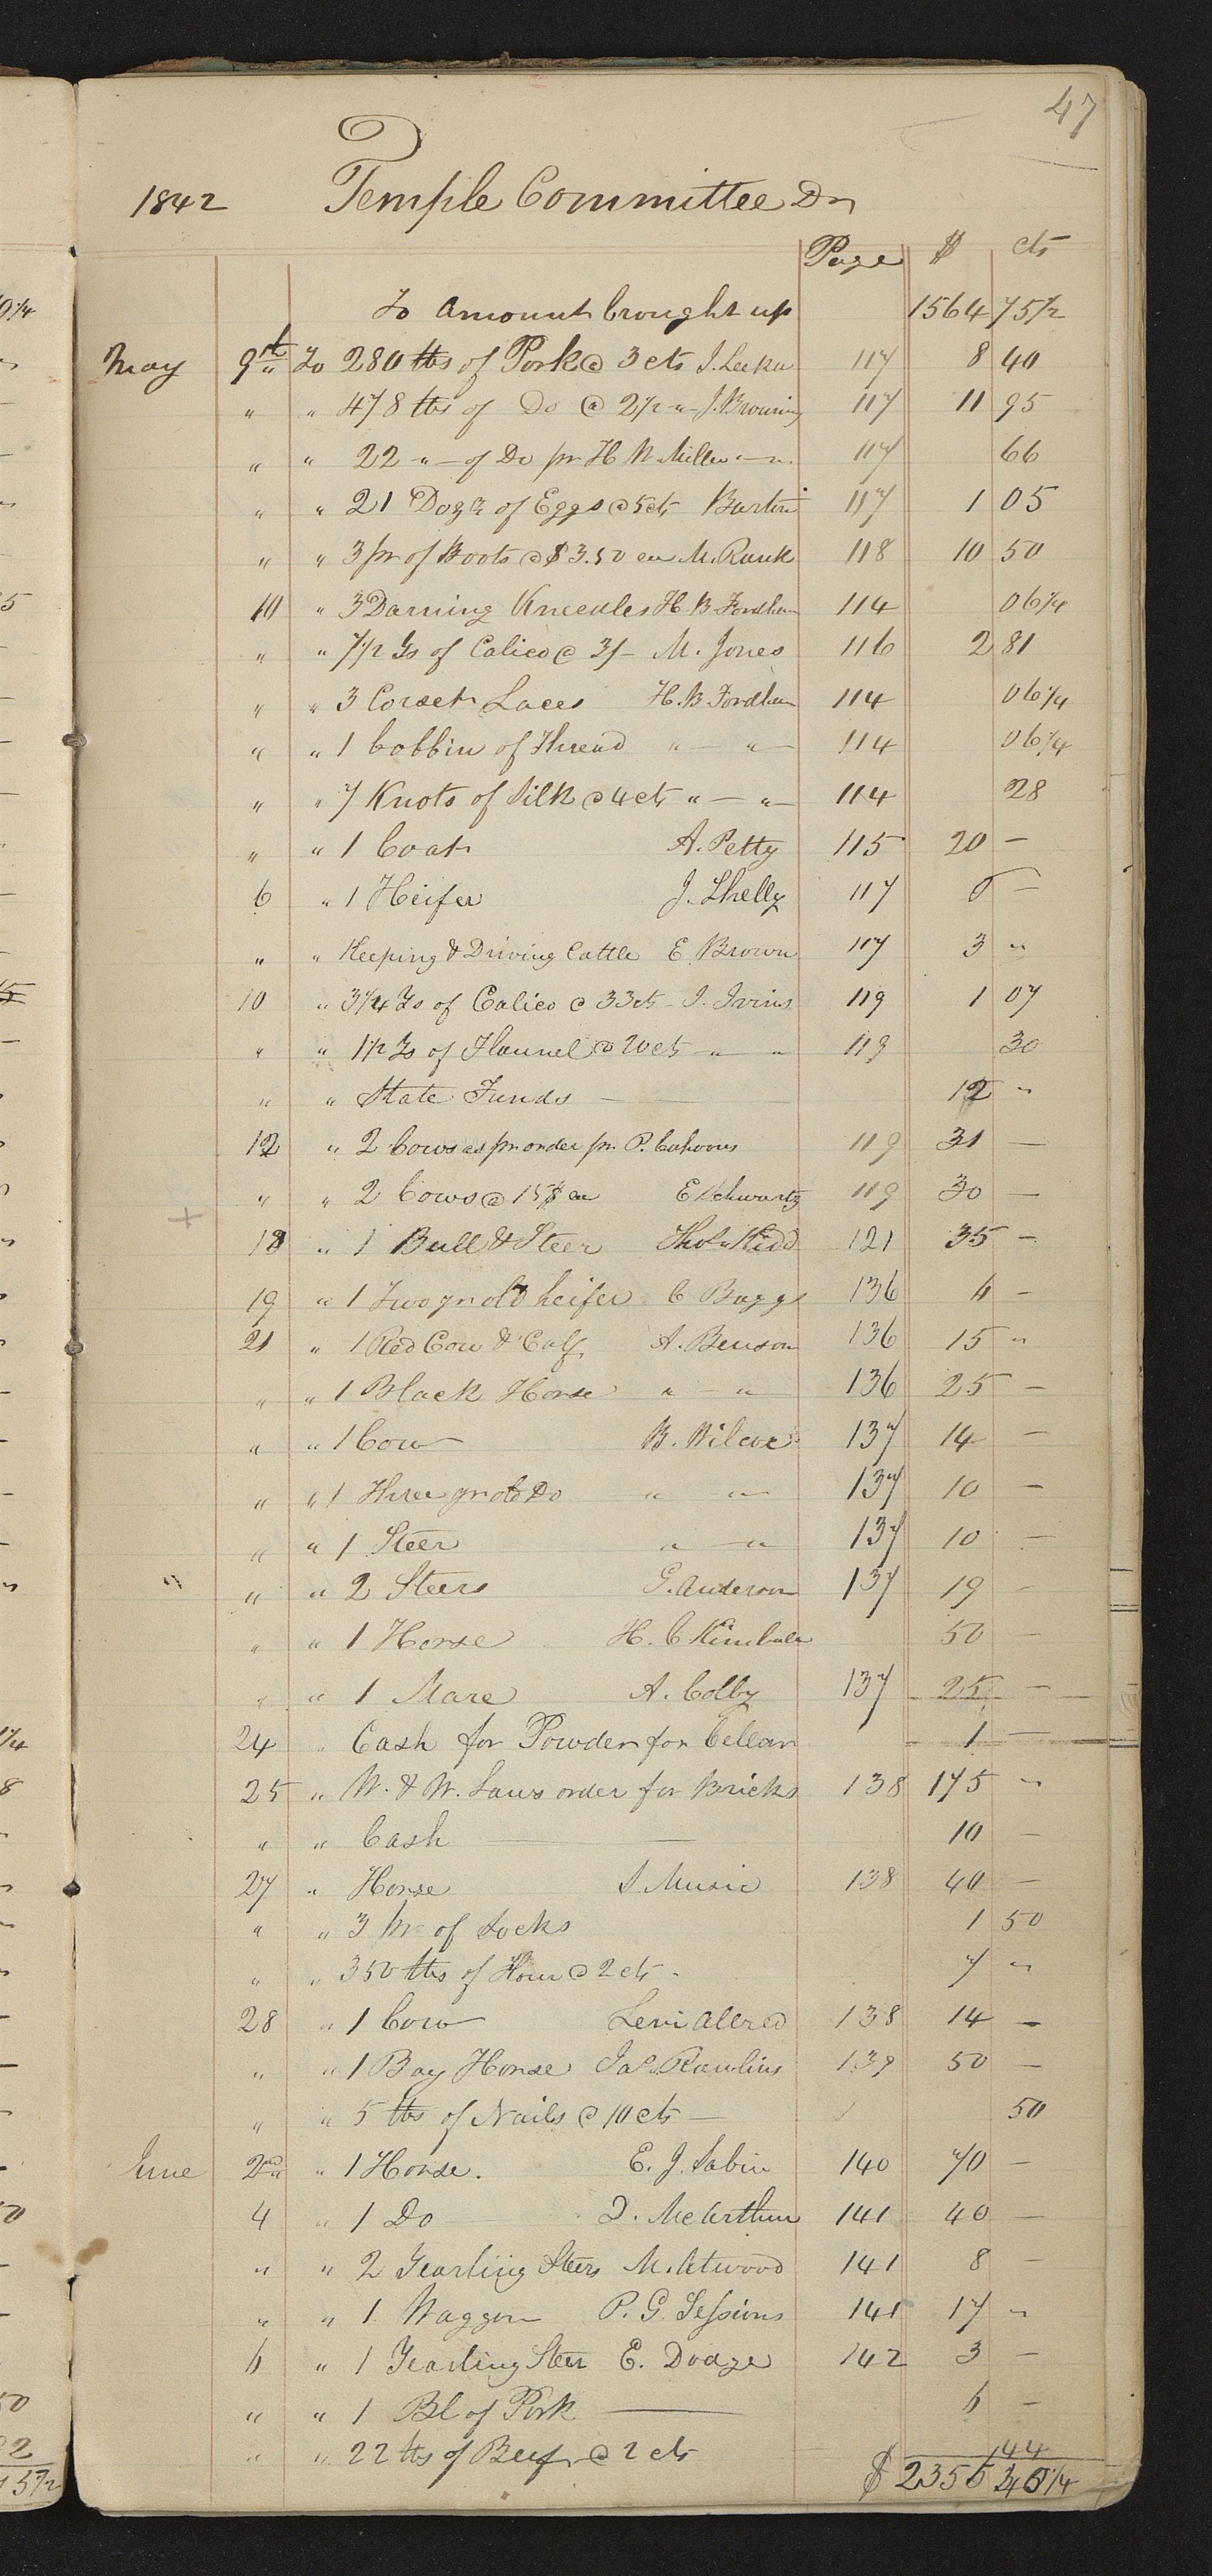 47
1842 Temple Committee Dr
Page $ cts
To Amount brought up 1564 75 1/2
May 9th To 280 lbs of Pork @ 3 cts J. 117 8 40
" " 478 lbs of Do @ 2 1/2 " J. Browning 117 11 95
" " 22 " of Do pr H W Miller " 117 66
" " 21 Dozn of Eggs @ 5 cts 117 1 05
" " 3 pr of Boots @ $3.50 ea M. Rank 118 10 50
10 " 3 Darning Kneedles H. B. Fordham 114 06 1/4
" " 7 1/2 Ys of Calico @ 3/- M. Jones 116 2 81
" " 3 Corset Laces H. B. Fordham 114 06 1/4
" " 1 bobbin of Thread " " 114 06 1/4
" " 7 Knots of Silk @ 4 cts " " 114 28
" " 1 Coat A. Petty 115 20 -
6 " 1 Heifer J. Shelly 117 -
" " Keeping & Driving Cattle E. Brown 117 3 "
10 " 3 1/4 Ys of Calico @ 33 cts J. Ivins 119 1 07
" " 1 1/2 Ys of Flannel @ 20 cts " " 119 30
" " State Funds 12 "
12 " 2 Cows as pr order pr P. Cahoons 119 31 -
" " 2 Cows @ 15$ ea E Schwartz 119 30 -
18 " 1 Bull & Steer Thos. Kidd 121 35 -
19 " 1 Two yr old heifer C Baggs 136 6 -
21 " 1 Red Cow & Calf A. Benson 136 15 "
" " 1 Black Horse " " 136 25 -
" " 1 Cow B. Wilcox 137 14 -
" " 1 Three yr old Do " " 137 10 -
" " 1 Steer " " 137 10 -
" " 2 Steers G. Anderson 137 19 -
" " 1 Horse H. C Kimball 50 -
" " 1 Mare A. Colby 137 25 -
24 " Cash for Powder for Cellar 1 -
25 " W. & W. Laws order for Bricks 138 175 "
" " Cash 10 -
27 " Horse S. Music 138 40 -
" " 3 pr of Socks 1 50
" " 350 lbs of Flour @ 2 cts 7 "
28 " 1 Cow Levi Allred 138 14 -
" " 1 Bay Horse Jas. Rawlins 139 50 -
" " 5 lbs of Nails @ 10 cts 50
June 2nd " 1 Horse. E. J. Sabin 140 70 -
4 " 1 Do D. McArthur 141 40 -
" " 2 Yearling Steers M. Atwood 141 8 -
" " 1 Waggon P. G. Sessions 141 17 "
6 " 1 Yearling Steer E. Dodge 142 3 -
" " 1 Bl of Pork 6 -
" " 22 lbs of Beef @ 2 cts 44
$ 2355